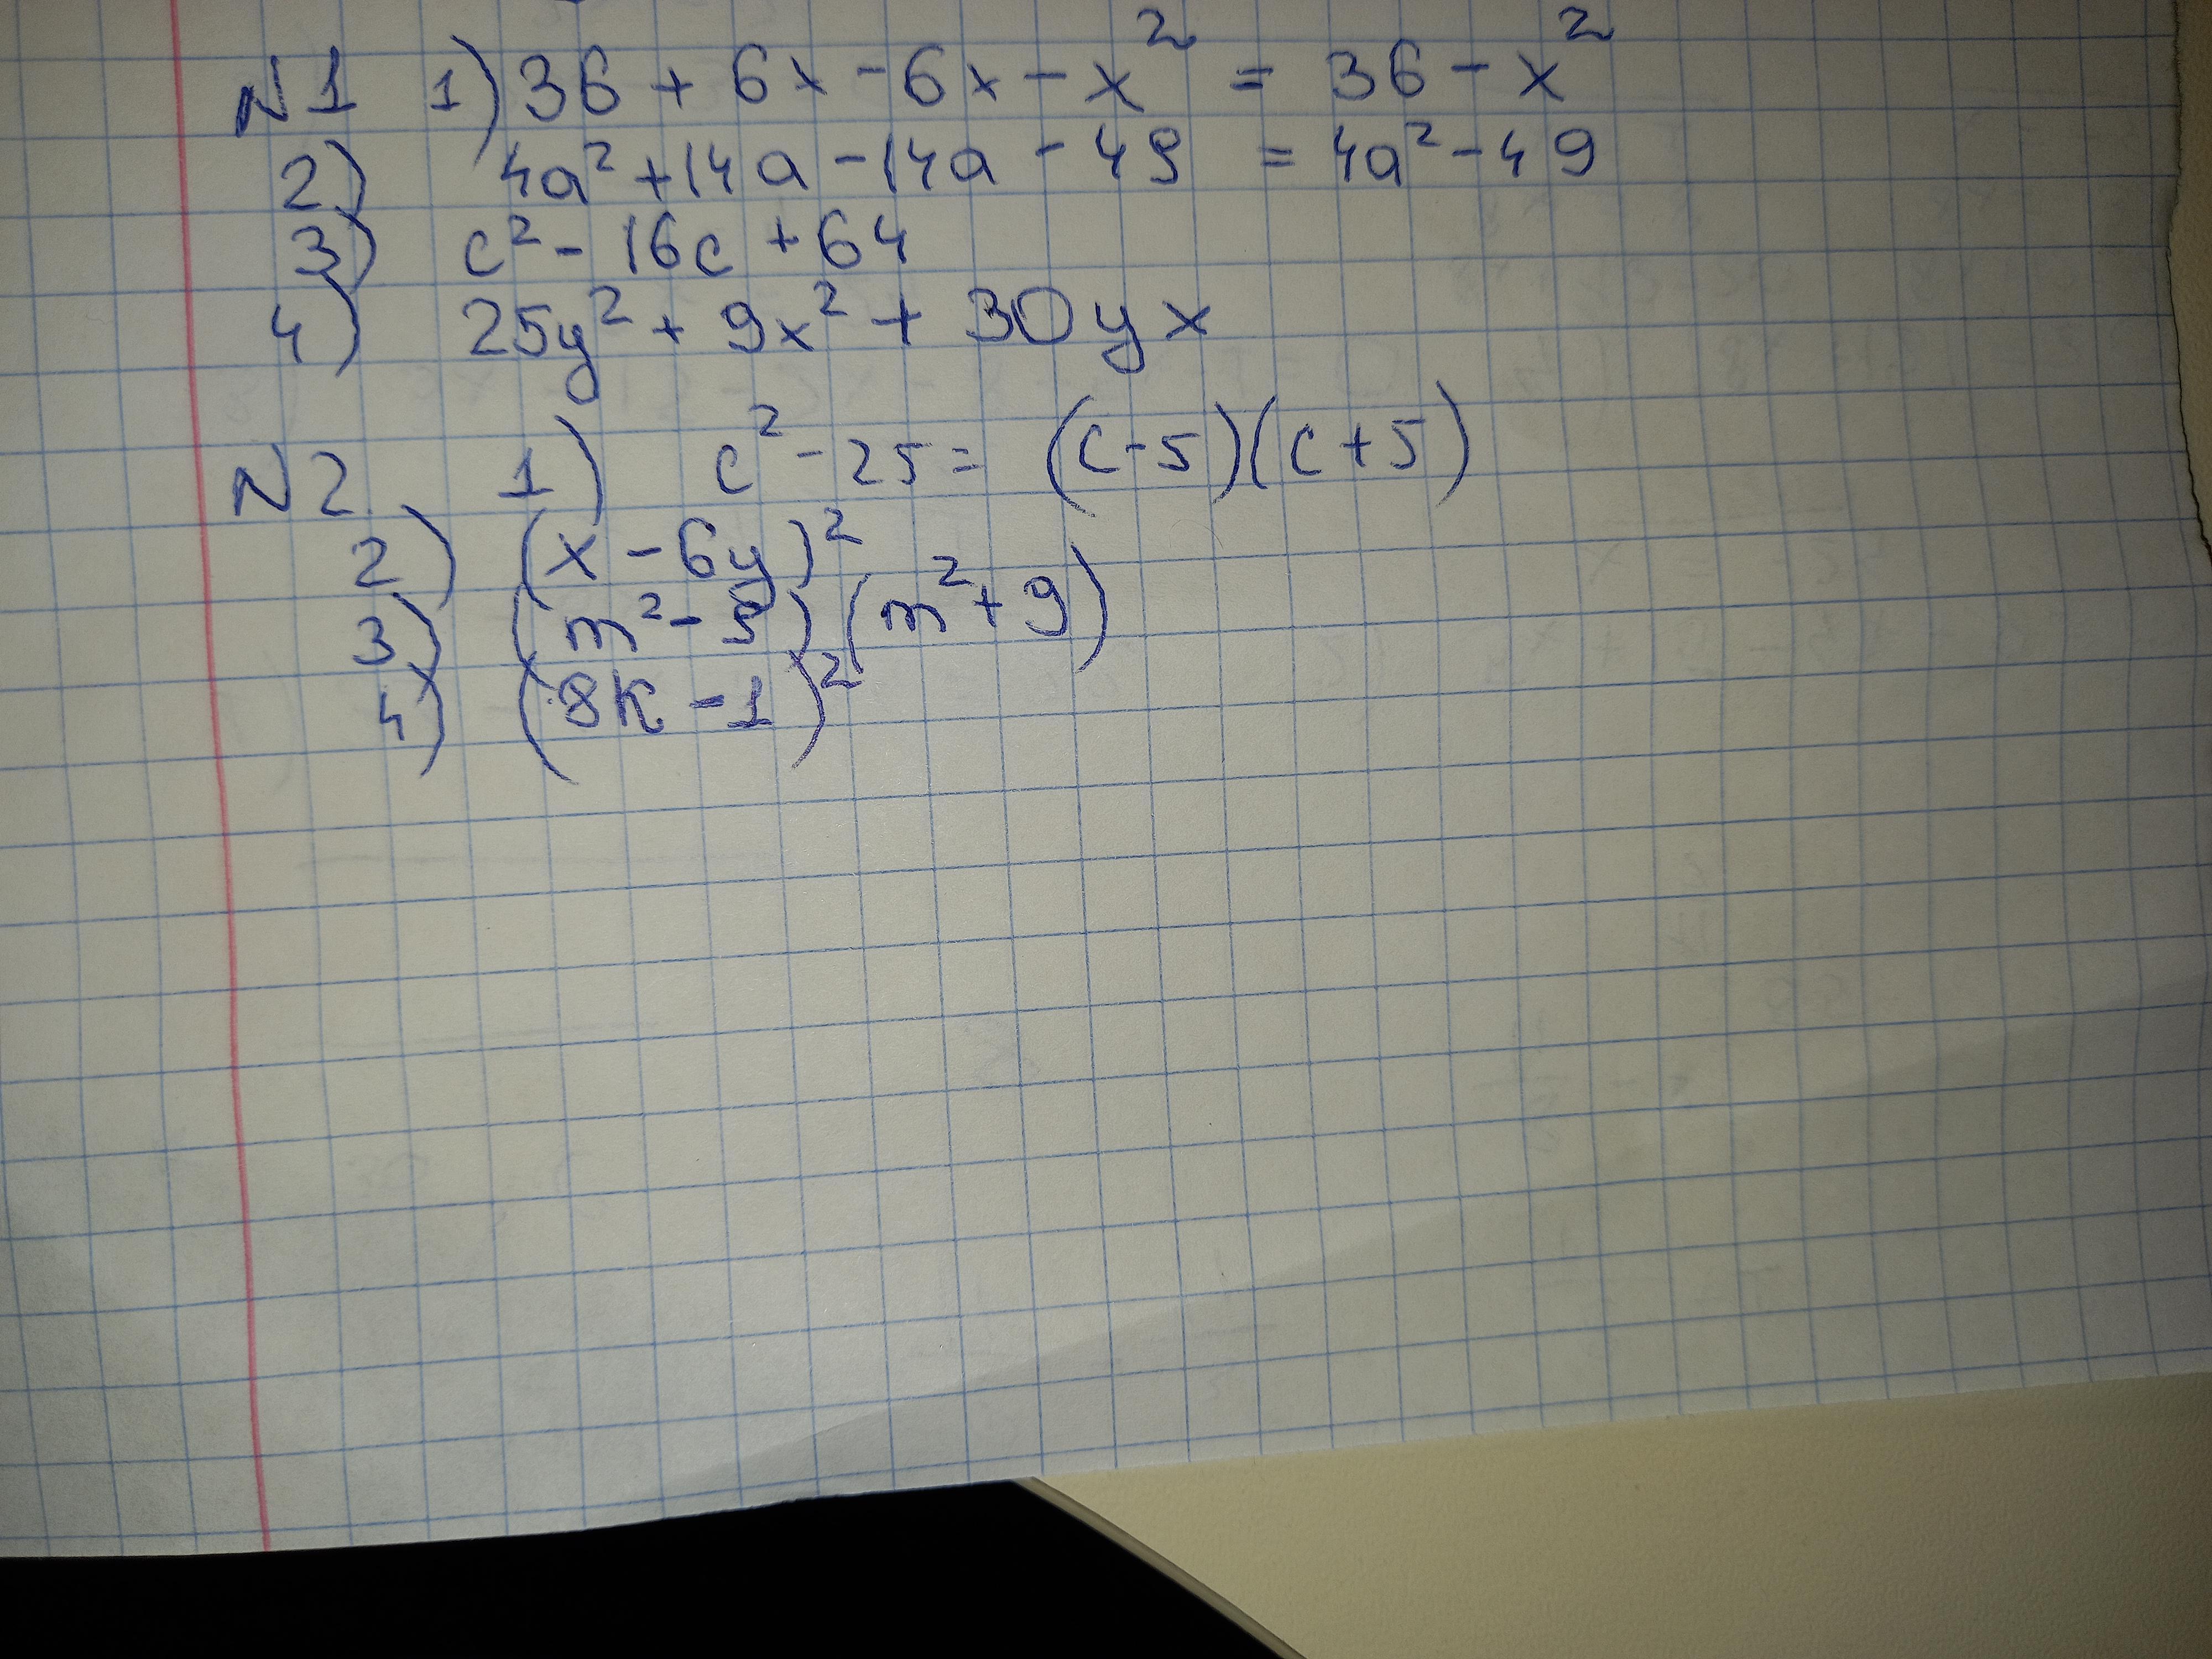 N1 1) 36 + 6x - 6x - x² = 36 - x²
2) 4a² + 14a - 14a - 49 = 4a² - 49
3) c² - 16c + 64
4) 25y² + 9x² + 30yx
N2. 1) c² - 25 = (c - 5)(c + 5)
2) (x - 6y)²
3) (m² - 9)(m² + 9)
4) (8k - 1)²